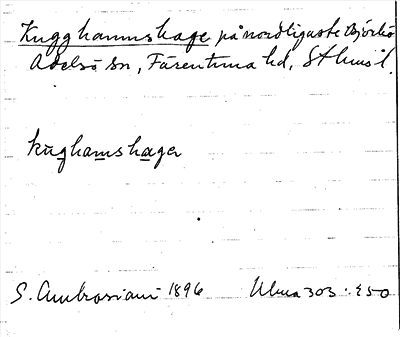 Kugghamnshage på nordligaste Björkö
Adelsö sn, Färentuna hd, Sthms l.
kughamshagen
S. Ambrosiani 1896 Uluma 303:450